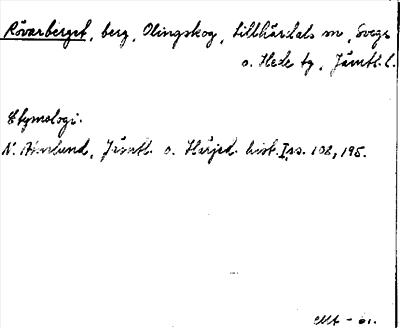 Rövarberget, berg, Olingskog, Lillhärdals sn, Svegs
o. Hede tg, Jämtl. l.
Etymologi:
N. Ahnlund, Jämtl. o. Härjed. hist. I, ss. 108, 195.